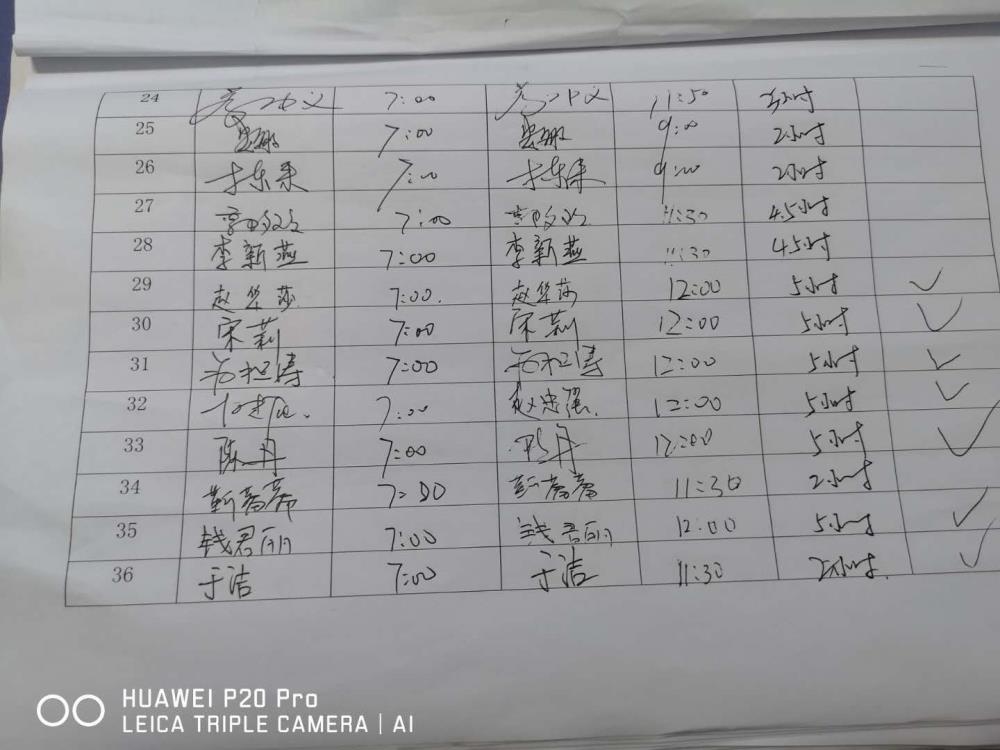 24 7:00 11:50 小时
25 7:00 9:00 2小时
26 7:00 9:00 2小时
27 7:00 11:30 4.5小时
28 李新燕 7:00 李新燕 11:30 4.5小时
29 赵华莎 7:00. 赵华莎 12:00 5小时 ✓
30 宋莉 7:00 宋莉 12:00 5小时 ✓
31 7:00 12:00 5小时 ✓
32 7:00 赵忠强. 12:00 5小时 ✓
33 陈丹 7:00 陈丹 12:00 5小时 ✓
34 7:00 11:30 2小时
35 钱君丽 7:00 钱君丽 12:00 5小时 ✓
36 于洁 7:00 于洁 11:30 2小时. ✓
HUAWEI P20 Pro
LEICA TRIPLE CAMERA | AI